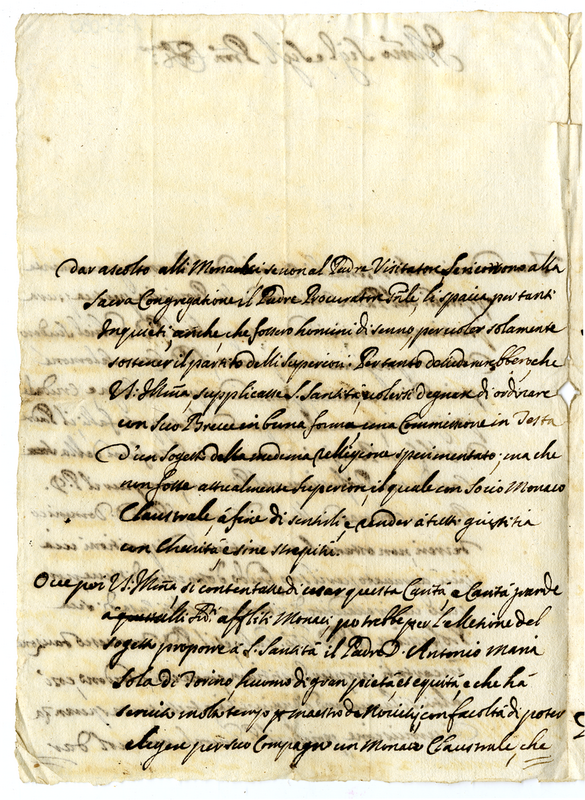 dar ascolto alli Monachi se non al Padre Visitatore se ricorrono alla
Sacra Congregatione il Padre Procuratore Gnle, li spaccia per tanti
Inquieti anche, che fossero homini di senno per voler solamente
sostener il partito delli Superiori. Per tanto desiderarebbero che
V: Illma supplicasse S. Santità volersi degnar di ordinare
con suo Breve in buna forma una Commissione in Testa
d'un sogetto della medema religione sperimentato, ma che
non fosse attualmente Superiore, il quale con Socio Monaco
Claustrale, à fine di sentirli, e render à tutti giustitia
con Charità, e sine strepitu.
Ove poi V: Illma si contentasse di usar questa Carità, e Carità grande
à questi afflitti Monaci, potrebbe per l'elletione del
sogetto proporre à S. Santità il Padre D. Antonio Maria
Sola di Torino, huomo di gran pietà, et equità, e che hà
servito molto tempo p maestro de Novitij, con facoltà di poter
elegere per suo Compagno un Monaco Claustrale, che